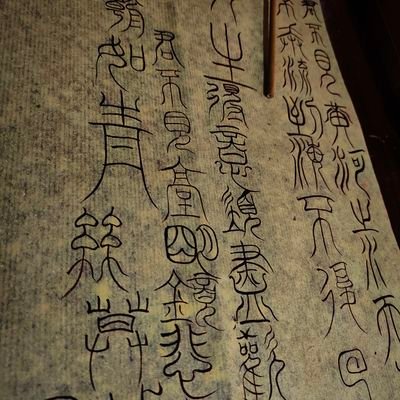 君不見黃河之水天
來奔流到海不復回
人生得意須盡歡
君不見高堂明鏡悲
朝如青絲暮